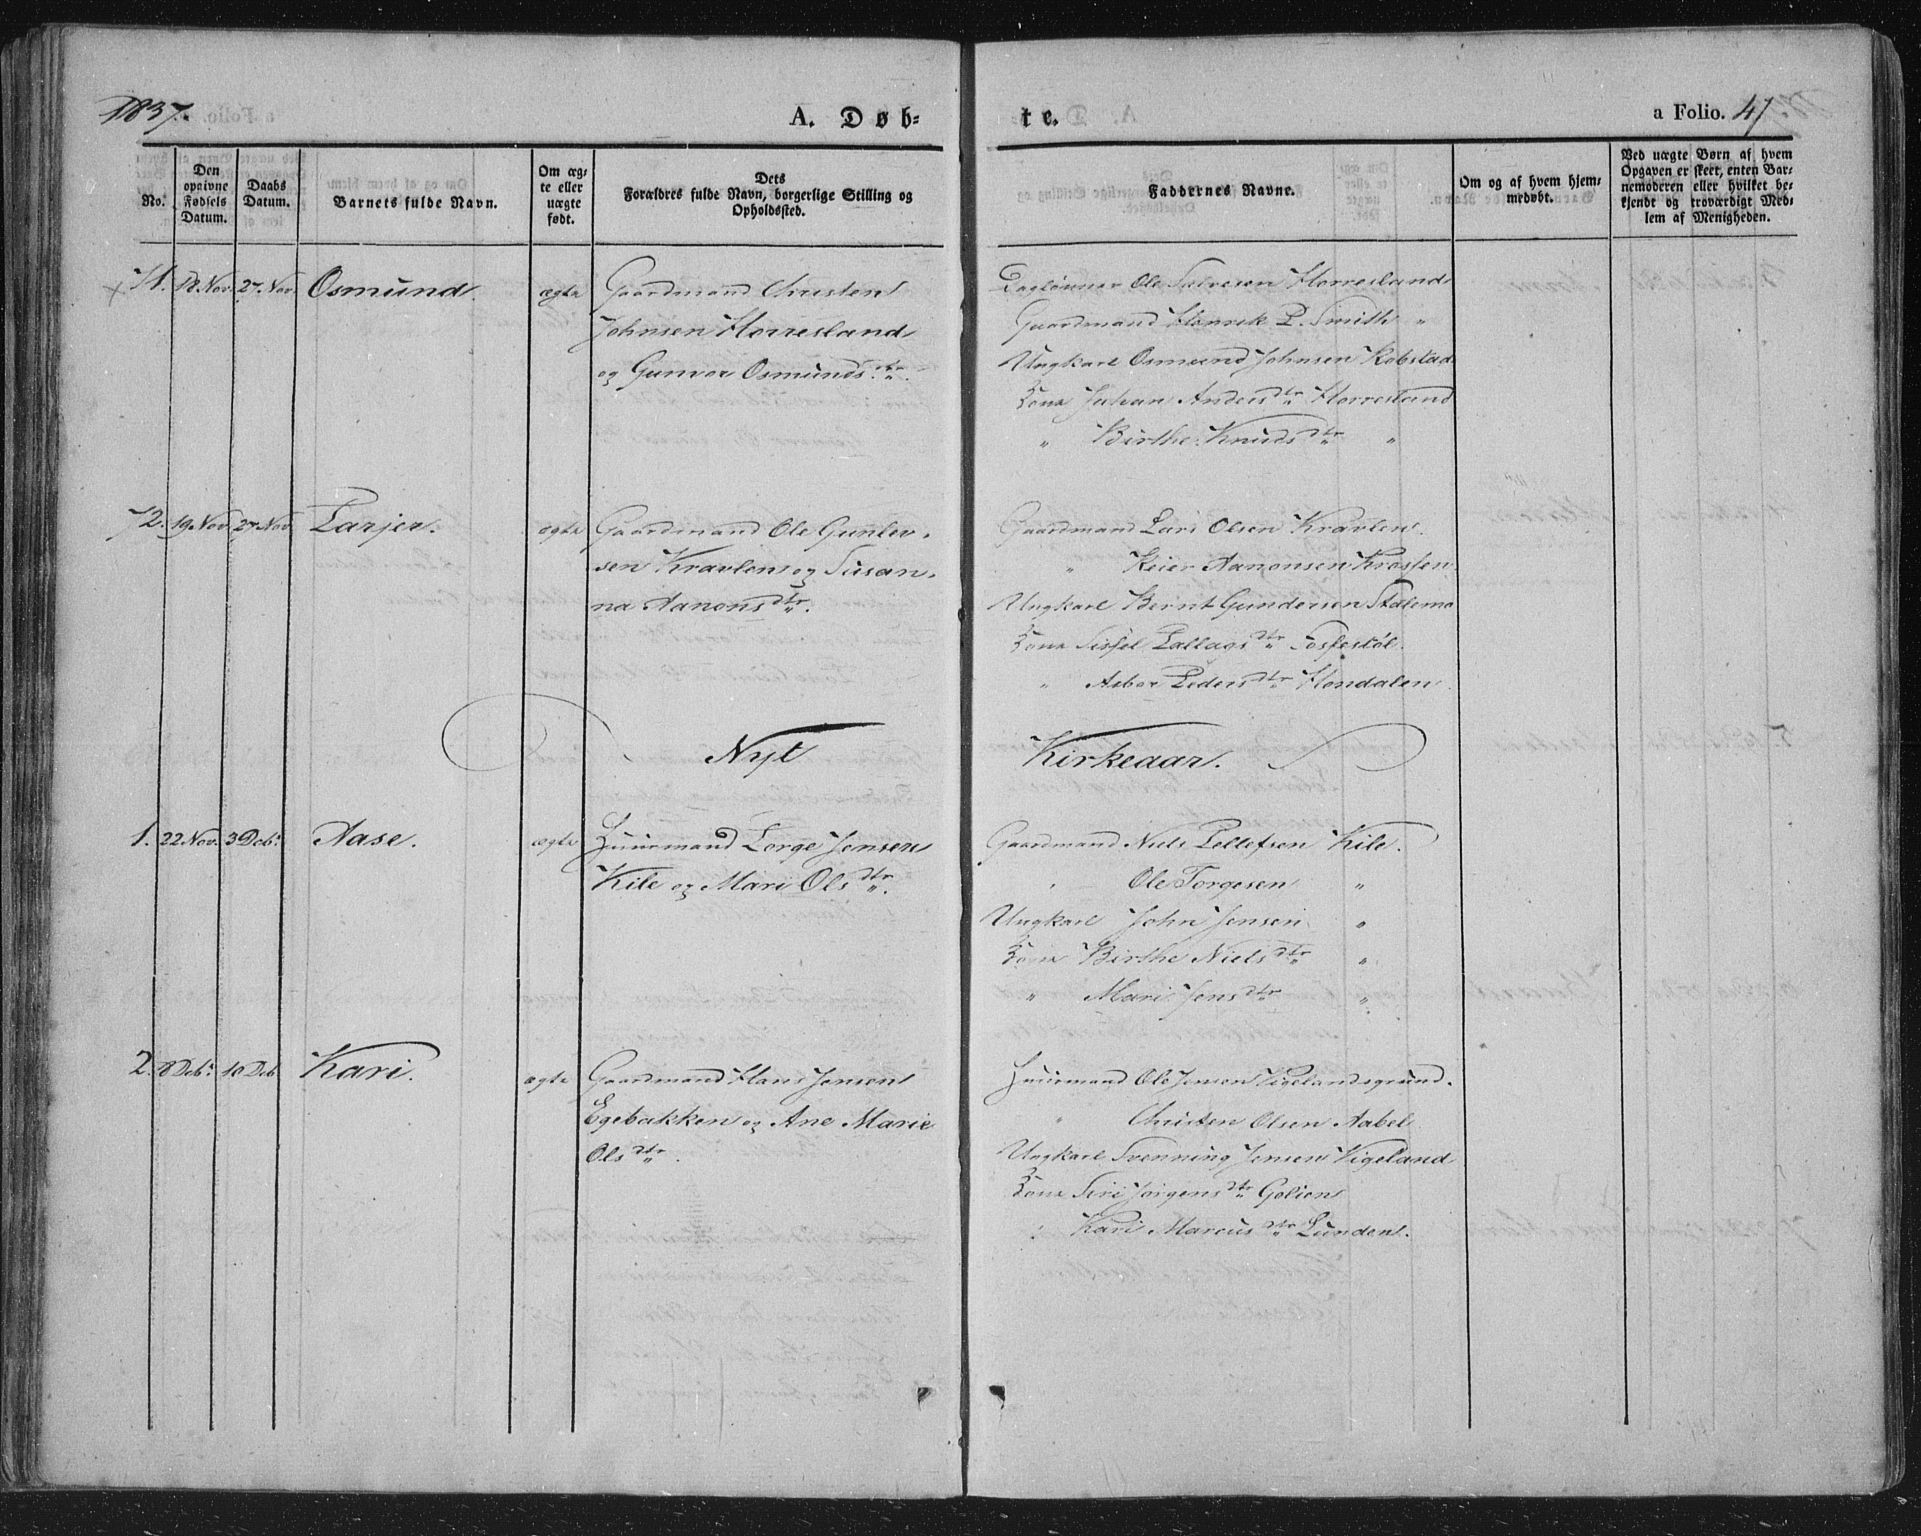 1837.
A. Døb-
te.
a Folio. 47
No.
Den opgivne Fødsels Datum.
Daabs Datum.
Barnets fulde Navn.
Om ægte eller uægte født.
Dets Forældres fulde Navn, borgerlige Stilling og Opholdssted.
Faddernes Navne.
Om og af hvem hjemmedøbt.
Ved uægte Børn af hvem Opgaven er skeet, enten Barnemoderen eller hvilket bekjendt og troværdigt Medlem af Menigheden.
71. 18 Nov. 27. Nov. Osmund. ægte Gaardmand Christen
Johnsen Horresland
og Gunvor Osmunds dtr.
Daglønner Ole Salvesen Horresland
Gaardmand Henrik P. Smith "
Ungkarl Osmund Johnsen Kobstad
Kone Johan Anders dtr Horresland
" Birthe Knuds dtr "
72. 19 Nov 27 Nov. Tarjer. ægte Gaardmand Ole Gunlev-
sen Kravlen og Susan-
na Aanons dtr.
Gaardmand Lars Olsen Kravlen.
" Reier Aanonsen Krossen
Ungkarl Bernt Gundersen Stalemo
Kone Sissel Tallags dtr Fossestøl.
" Asbor Peders dtr Hondalen.
Nyt Kirkeaar.
1. 22 Nov. 3 Decbr. Aase. ægte Huusmand Torge Jensen
Kile og Mari Ols dtr.
Gaardmand Niels Tellefsen Kile.
" Ole Torgesen "
Ungkarl John Jensen "
Kone Birthe Niels dtr "
" Mari Jens dtr "
2. 8 Decbr. 10 Decb Kari. ægte Gaardmand Hans Jensen
Egebakken og Ane Marie
Ols dtr.
Huusmand Ole Jensen Vigelandsgrund.
" Christen Olsen Aabel
Ungkarl Svenning Jensen Vigeland
Kone Siri Jörgens dtr Golien
" Kari Marcus dtr Lunden.